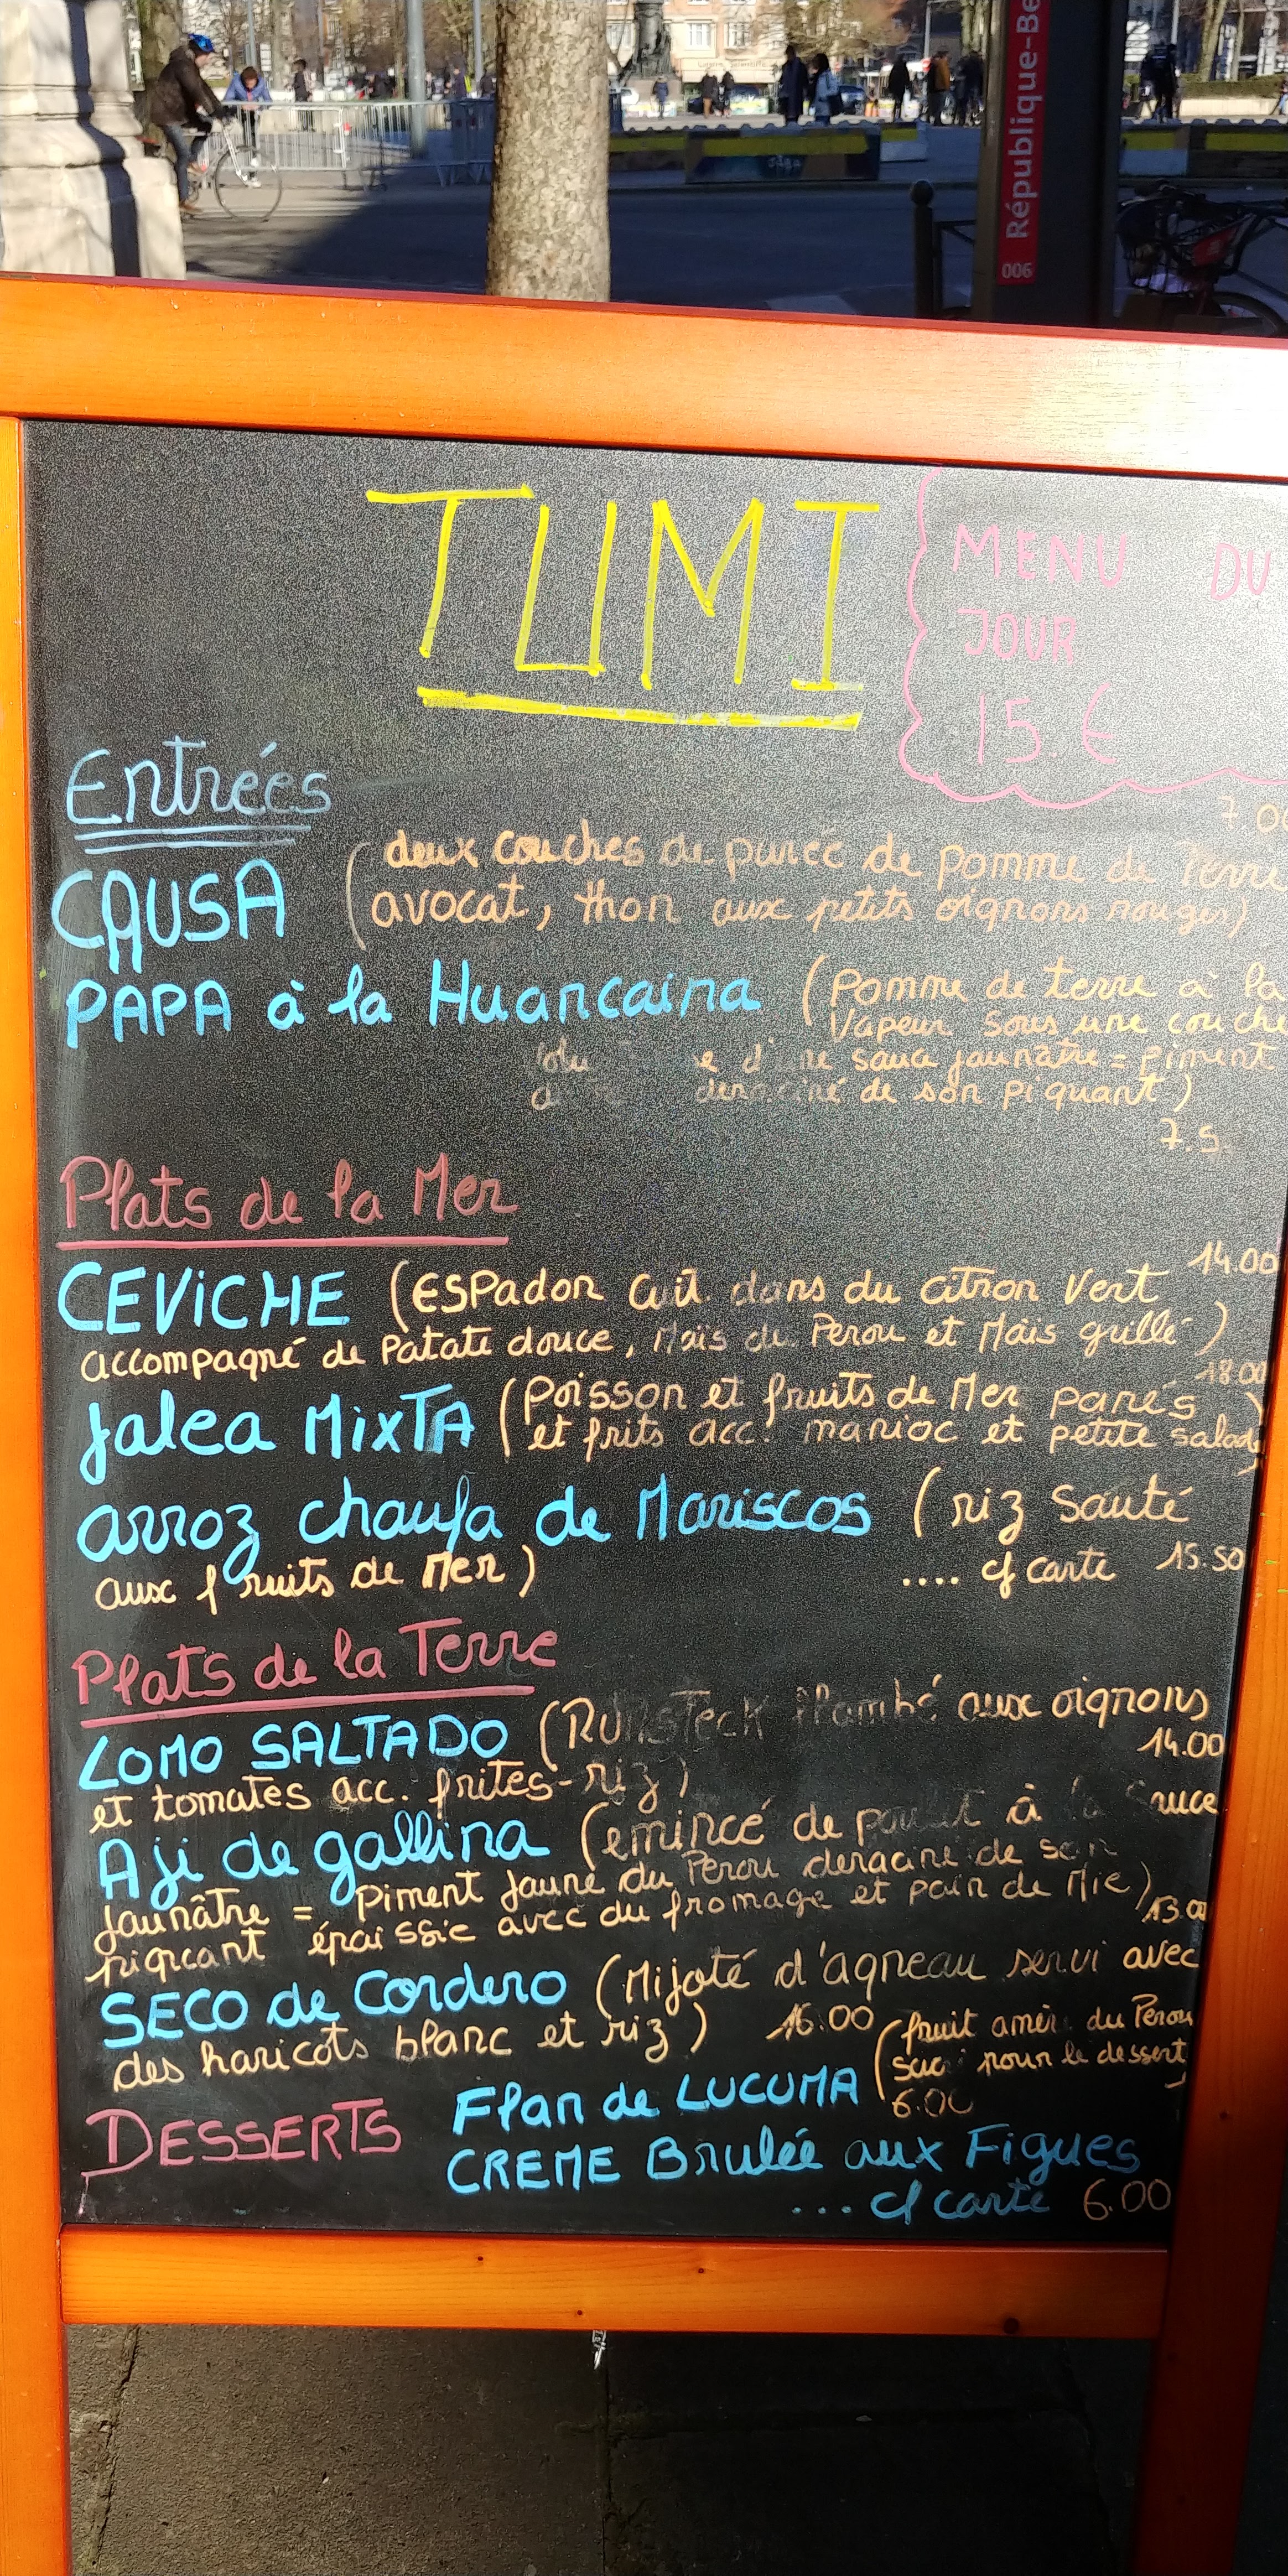 République-Be
006
TUMI
MENU DU
JOUR
15 €
Entrées
7.0
CAUSA (deux couches de purée de pomme de Terre
avocat, thon aux petits oignons rouges)
PAPA à la Huancaina (Pomme de terre à la
Vapeur sous une couch
e d'une sauce jaunâtre = piment
deraciné de son piquant)
7.5
Plats de la Mer
14.00
CEVICHE (ESPadon cuit dans du citron Vert
accompagné de Patate douce, Maïs du Perou et Maïs grillé)
18.00
Jalea MixTA (Poisson et fruits de Mer panés
et frits acc. manioc et petite salade)
arroz chaufa de Mariscos (riz Sauté
aux fruits de Mer) .... cf carte 15.50
Plats de la Terre
LOMO SALTADO (RUMSTECK flambé aux oignons
14.00
et tomates acc. frites-riz)
Aji de gallina (emincé de poulet à la Sauce
Jaunâtre = Piment Jaune du Perou deraciné de son
piqcant épaissie avec du fromage et pain de Mie) 13.00
SECO de Cordero (Mijoté d'agneau servi avec
des haricots blanc et riz) 16.00
DESSERTS
Flan de LUCUMA (fruit amère du Perou
sucré pour le dessert)
6.00
CREME Brulée aux Figues
... cf carte 6.00